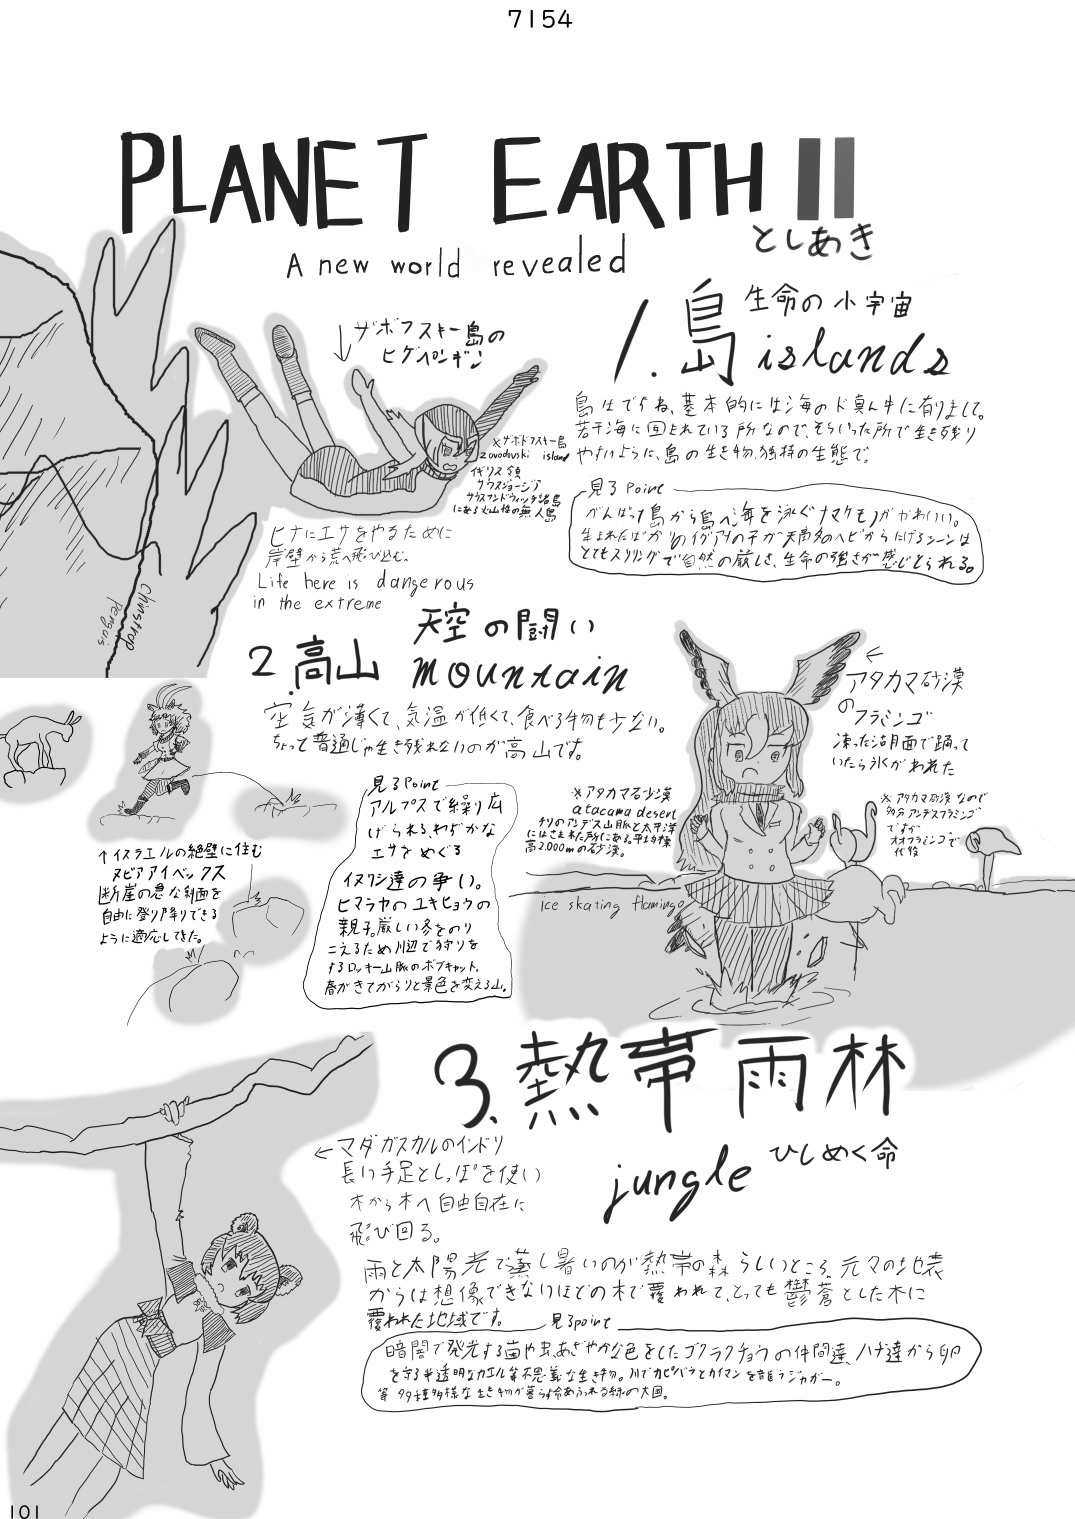 7154
PLANET EARTH II
としあき
A new world revealed
↓ザボフスキー島の
ヒゲペンギン
1.島 生命の小宇宙
islands
島はですね、基本的には海のド真ん中に有りまして。
若干海に回まれている所なので、そういった所で生き残り
やすいように、島の生き物、独特の生態で。
※ザボドフスキー島
zavodovski island
イギリス領
サウスジョージア
サウスサンドウィッチ諸島
にある火山性の無人島
見るPoint
がんばって島から島へ海を泳ぐナマケモノがかわいい。
生まれたばかりのイグアナの子が天敵のヘビからにげるシーンは
とてもスリリングで自然の厳しさ、生命の強さが感じとられる。
ヒナにエサをやるために
岸壁から荒へ飛び込む。
Life here is dangerous
in the extreme
chinstrap
penguis
天空の闘い
2.高山 mountain
空気が薄くて、気温が低くて、食べる物も少ない。
ちょっと普通じゃ生き残れないのが高山です。
←アタカマ砂漠
の
フラミンゴ
凍った湖面で踊って
いたら氷がわれた
見るPoint
アルプスで繰り広
げられる、わずかな
エサをめぐる
イヌワシ達の争い。
ヒマラヤのユキヒョウの
親子。厳しい冬をのり
こえるため川辺で狩りを
するロッキー山脈のボブキャット。
春がきてがらりと景色を変える山。
※アタカマ砂漠
atacama desert
チリのアンデス山脈と太平洋
にはさまれた所にある。平均標
高2.000mの砂漠。
※アタカマ砂漠なので
多分アンデスフラミンゴ
ですが
オオフラミンゴで
代役
↑イスラエルの絶壁に住む
ヌビアアイベックス
断崖の急な斜面を
自由に登り降りできる
ように適応してきた。
Ice skating flamingo
3.熱帯雨林
jungle ひしめく命
←マダガスカルのインドリ
長い手足としっぽを使い
木から木へ自由自在に
飛び回る。
雨と太陽光で蒸し暑いのが熱帯の森らしいところ、元々の地表
からは想像できないほどの木で覆われて、とっても鬱蒼とした木に
覆われた地域です。
見るpoint
暗闇で発光する菌や虫、あざやかな色をしたゴクラクチョウの仲間達、ハチ達から卵
を守る半透明なカエル等不思議な生き物。川でカピバラとカイマンを襲うジャガー。
等 多種多様な生き物が暮らす命あふれる緑の大国。
101